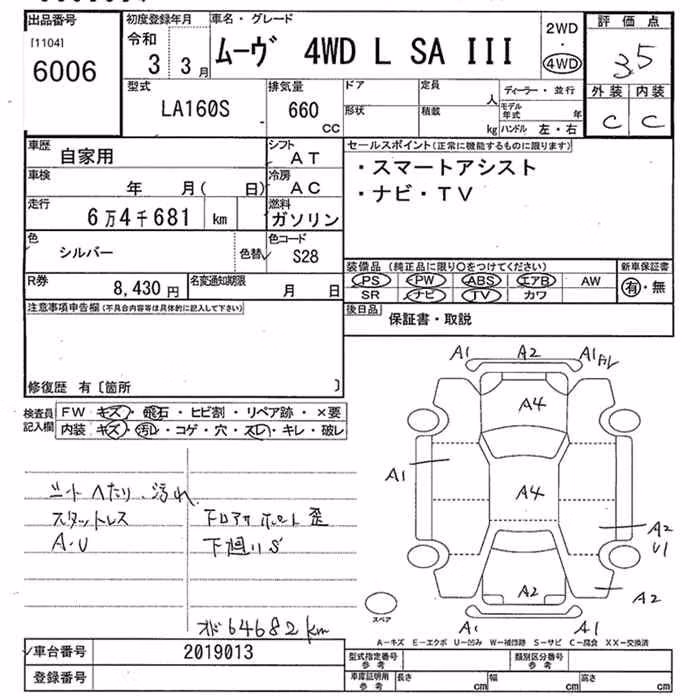 出品番号
[1104]
6006
初度登録年月
令和
3 3月
車名・グレード
ムーヴ 4WD L SA III
2WD
・
4WD
評価点
3.5
外装 内装
C C
型式
LA160S
排気量
660
CC
ドア
定員
人
形状
積載
kg
ディーラー・並行
モデル年式 年
ハンドル 左・右
車歴
自家用
シフト
AT
車検
年 月( 日)
冷房
AC
走行
6万4千681 km
燃料
ガソリン
色
シルバー
色替
色コード
S28
R券
8,430 円
名変通知期限
月 日
セールスポイント(正常に機能するものに限ります)
・スマートアシスト
・ナビ・TV
装備品 (純正品に限り○をつけてください)
PS PW ABS エアB AW
SR ナビ TV カワ
新車保証書
有・無
後日品
保証書・取説
注意事項申告欄(不具合内容等は具体的に記入して下さい)
修復歴 有〔箇所 〕
検査員記入欄
FW キズ・飛石・ヒビ割・リペア跡・×要
内装 キズ・汚レ・コゲ・穴・スレ・キレ・破レ
シートヘたり、汚れ
スタットレス
A・U
フロアサポート歪
下廻りS
オド64682km
A1 A2 A1
A4
A1 A4
A2
U1
A2 A2
A1 A1
スペア
A−キズ E−エクボ U−凹み W−補修跡 S−サビ C−腐食 XX−交換済
車台番号
2019013
登録番号
型式指定番号
参考
類別区分番号
参考
車庫証明用
参考
長さ cm 幅 cm 高さ cm